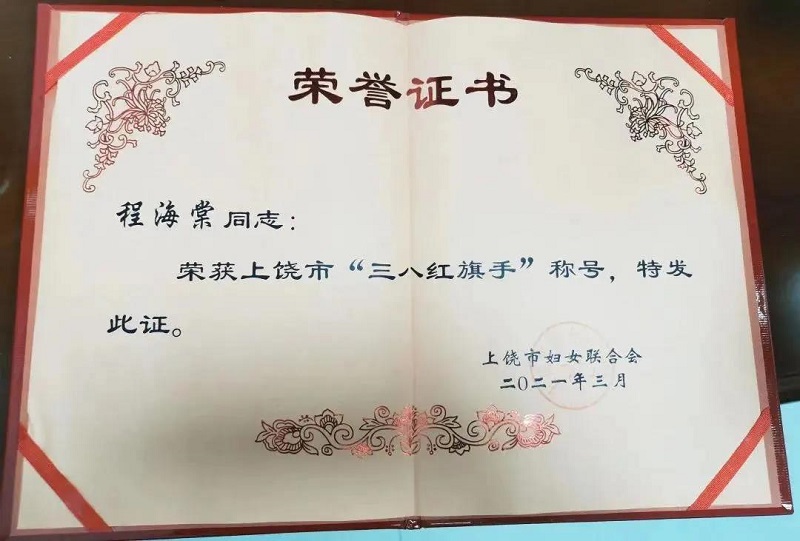 荣誉证书
程海棠同志：
荣获上饶市“三八红旗手”称号，特发
此证。
上饶市妇女联合会
二〇二一年三月